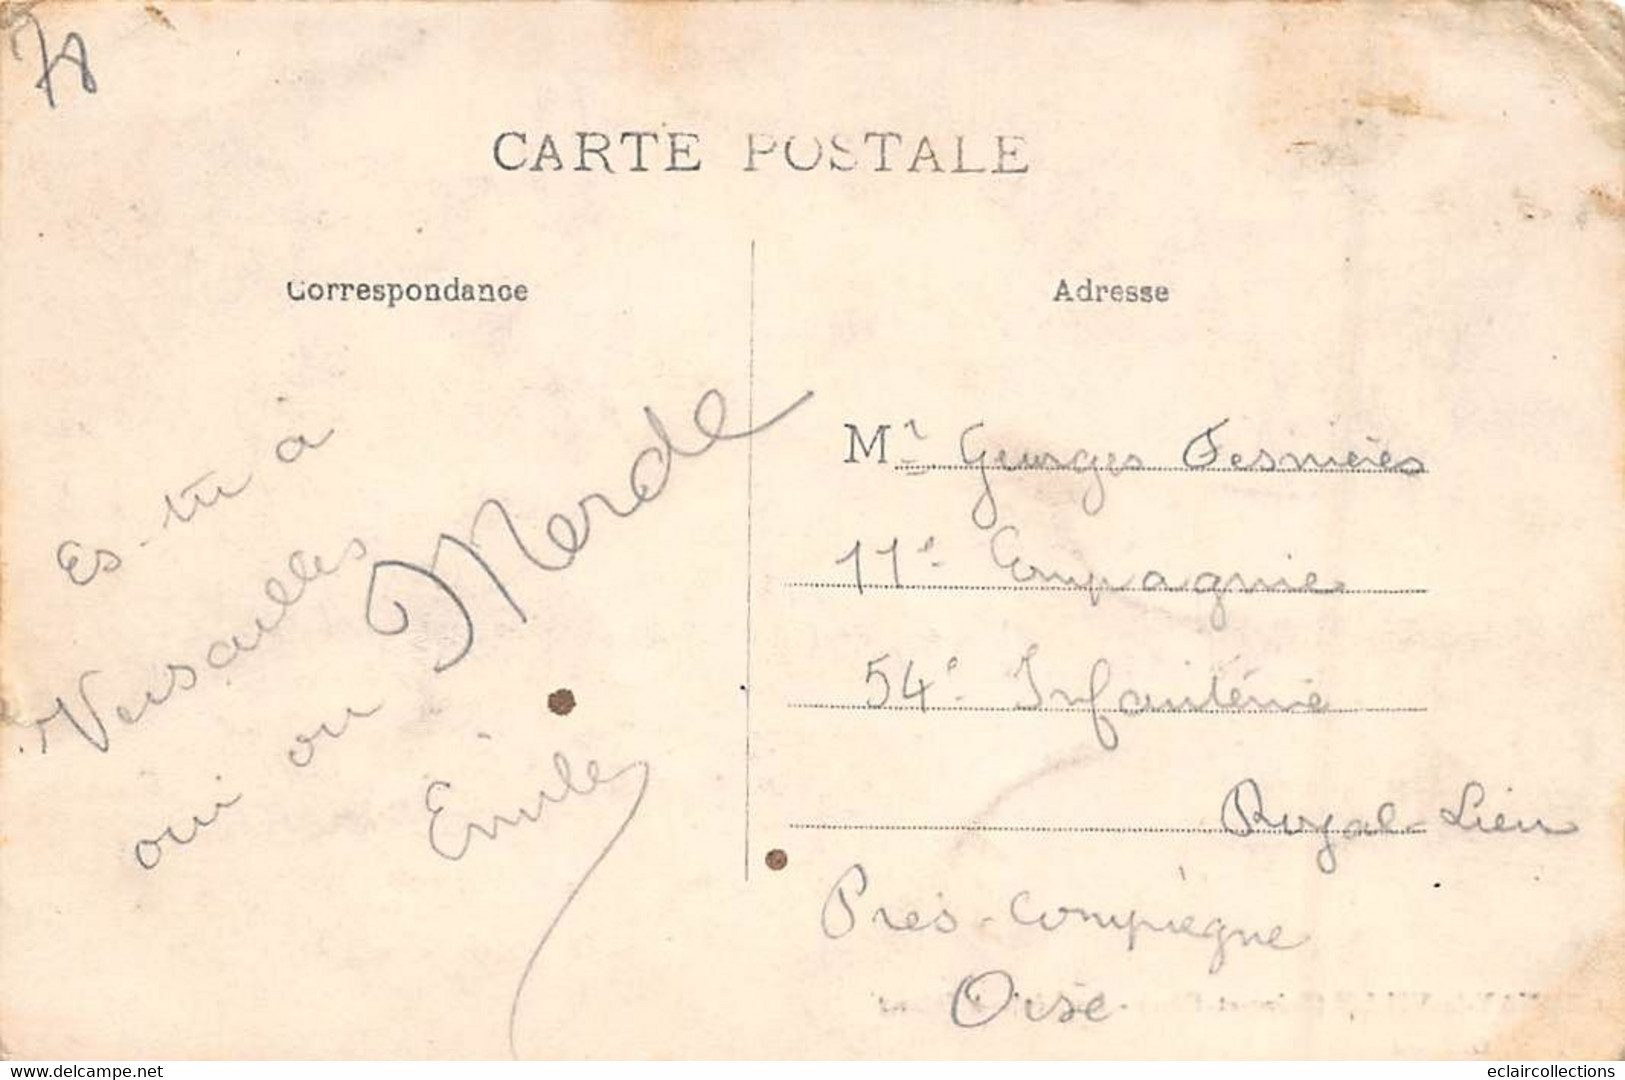 78
CARTE POSTALE
Correspondance
Adresse
Es-tu à
Versailles
oui ou Merde
Emile
Mr Georges
11e Compagnie
54e Infanterie
Royal-Lieu
Près-Compiègne
Oise
www.delcampe.net
eclaircollections